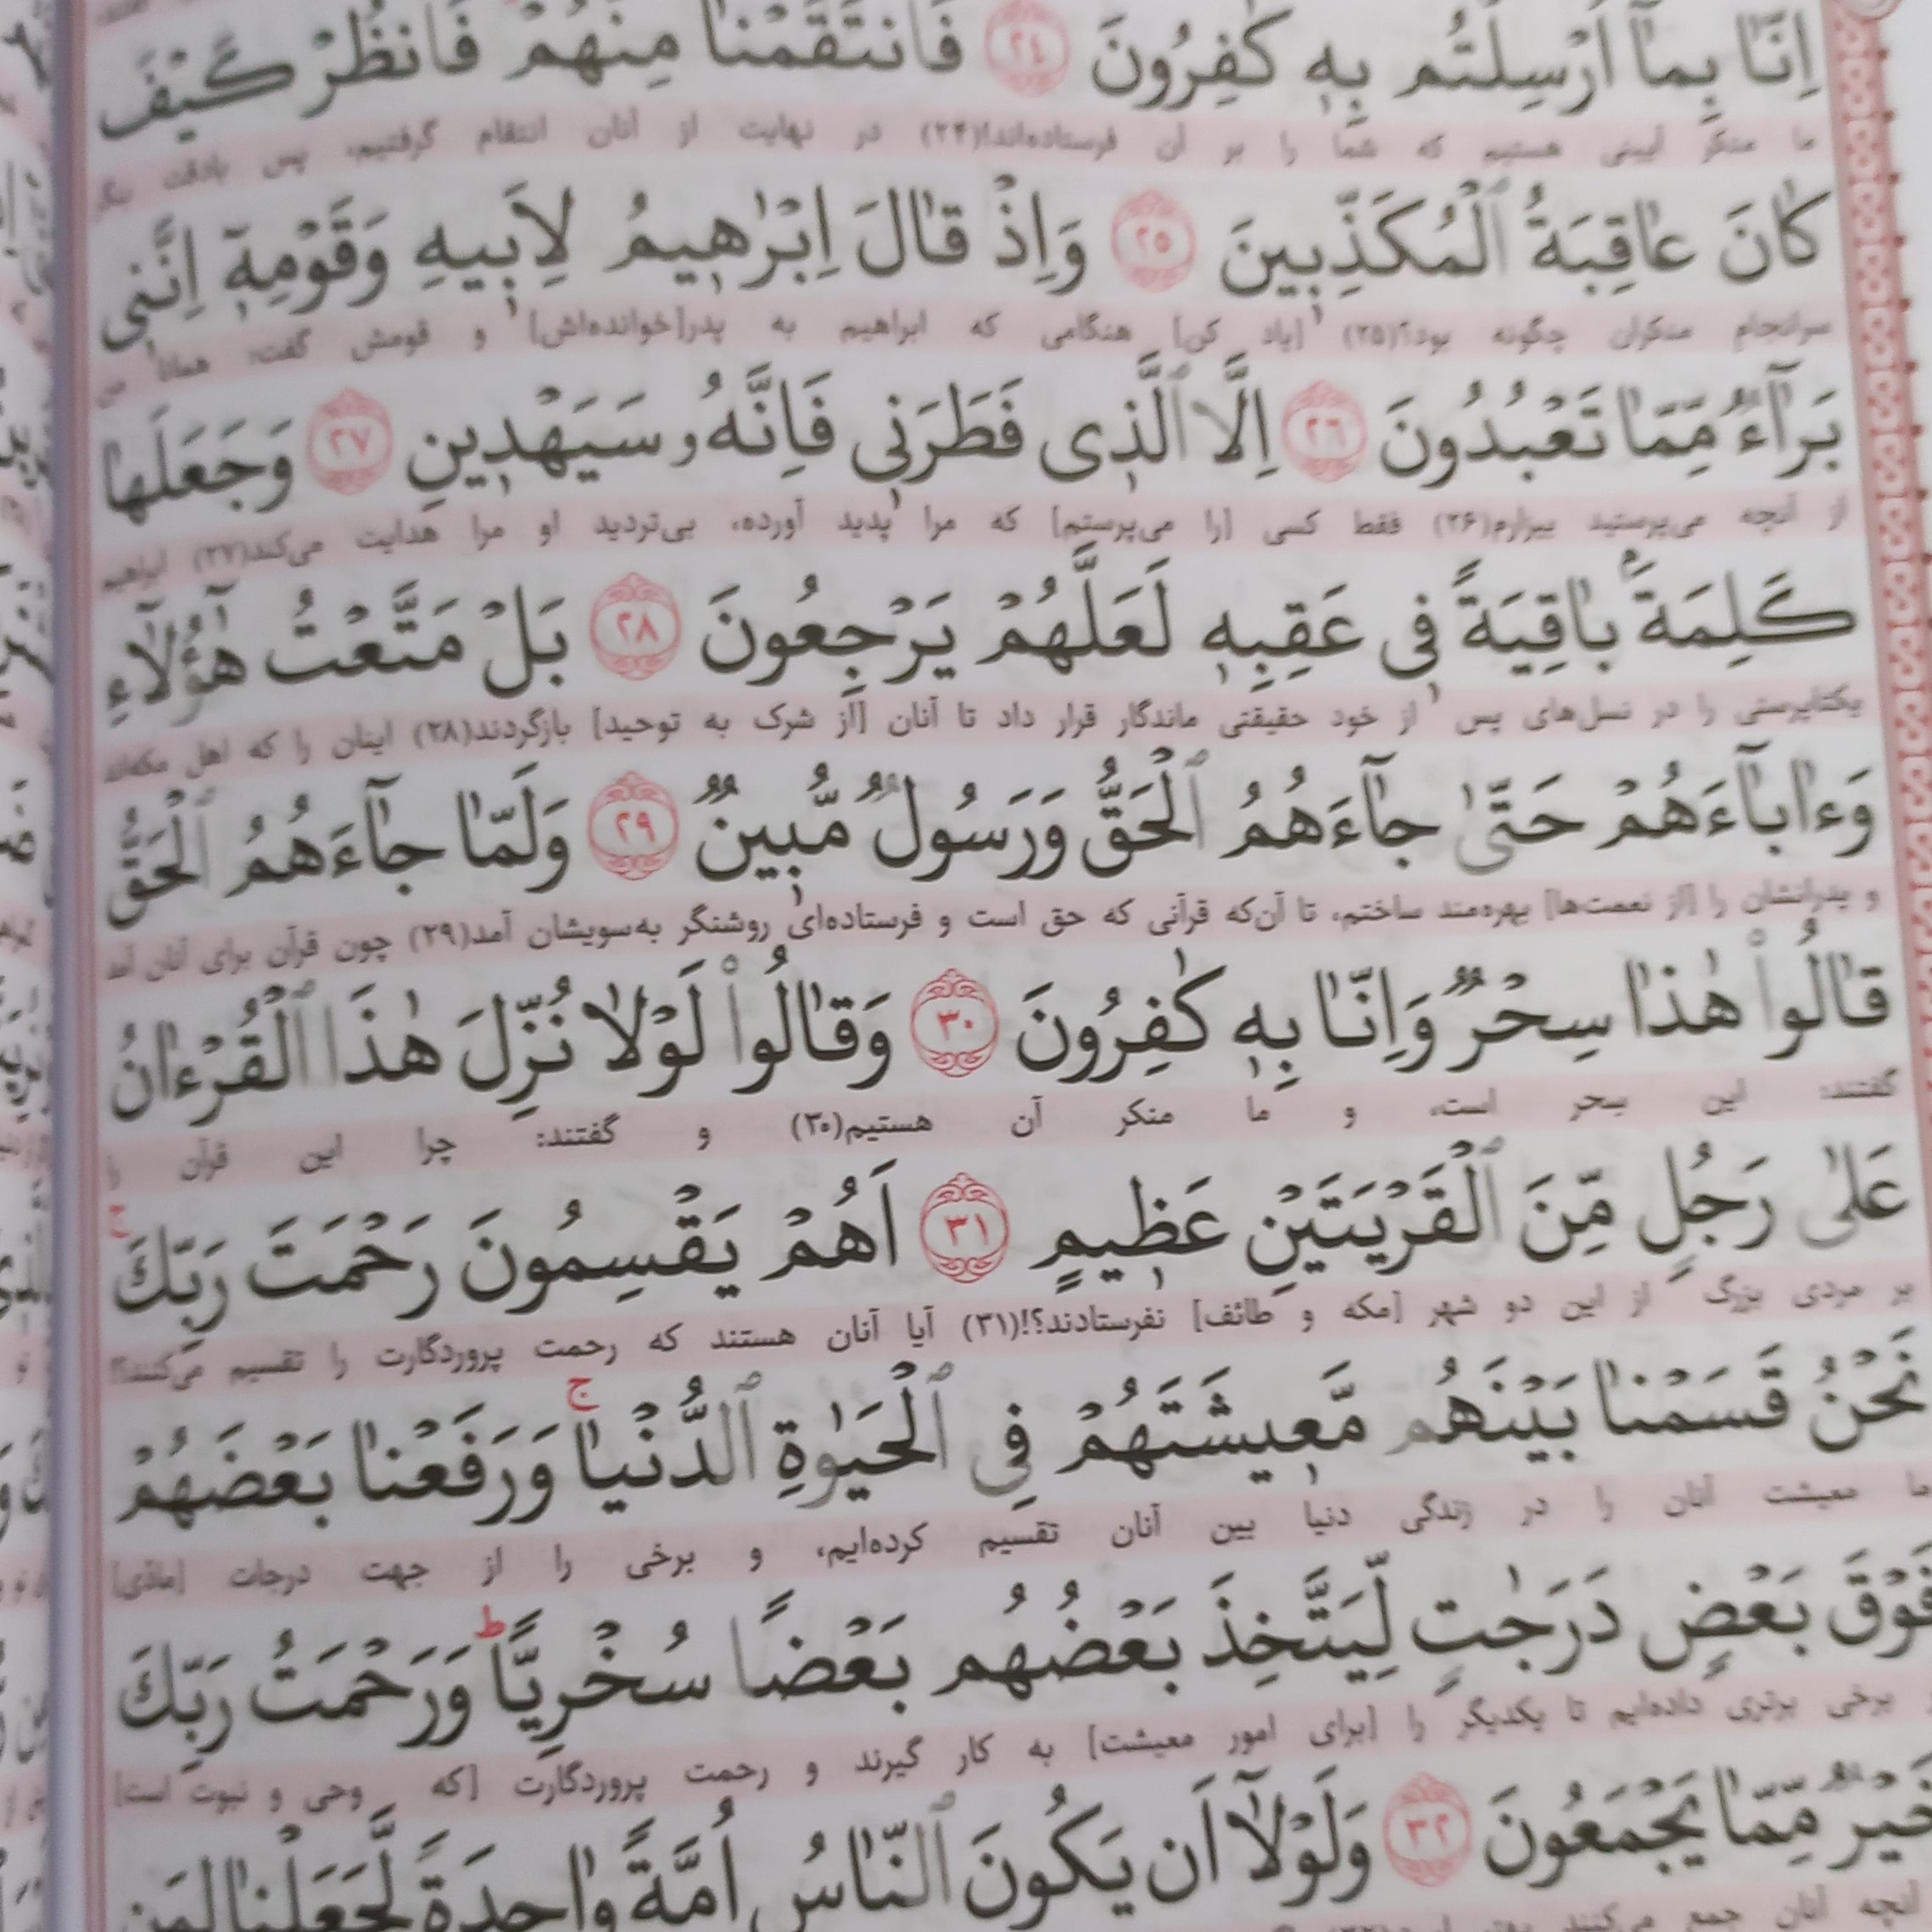 اِنّا بِمآ اُرْسِلْتُم بِهٖ كٰفِرُونَ ٢٤ فَانتَقَمْنا مِنْهُمْ فَانظُرْ كَيْفَ
ما منکر آیینی هستیم که شما را بر آن فرستاده‌اند!(۲۴) در نهایت از آنان انتقام گرفتیم، پس بادقت بنگر
كانَ عاقِبَةُ ٱلْمُكَذِّبينَ ٢٥ وَاِذْ قالَ اِبْرٰهيمُ لِاَبيهِ وَقَوْمِهٖٓ اِنَّنى
سرانجام منکران چگونه بود؟(۲۵) [یاد کن] هنگامی که ابراهیم به پدر[خوانده‌اش] و قومش گفت: همانا من
بَرآءٌ مِّمّا تَعْبُدُونَ ٢٦ اِلَّا ٱلَّذى فَطَرَنى فَاِنَّهُۥ سَيَهْدينِ ٢٧ وَجَعَلَها
از آنچه می‌پرستید بیزارم(۲۶) فقط کسی [را می‌پرستم] که مرا پدید آورده، بی‌تردید او مرا هدایت می‌کند(۲۷) ابراهیم
كَلِمَةً باقِيَةً فى عَقِبِهٖ لَعَلَّهُمْ يَرْجِعُونَ ٢٨ بَلْ مَتَّعْتُ هٰٓؤُلآءِ
یکتاپرستی را در نسل‌های پس از خود حقیقتی ماندگار قرار داد تا آنان [از شرک به توحید] بازگردند(۲۸) اینان را که اهل مکه‌اند
وَءابآءَهُمْ حَتّىٰ جآءَهُمُ ٱلْحَقُّ وَرَسُولٌ مُّبينٌ ٢٩ وَلَمّا جآءَهُمُ ٱلْحَقُّ
و پدرانشان را [از نعمت‌ها] بهره‌مند ساختم، تا آن‌که قرآنی که حق است و فرستاده‌ای روشنگر به‌سویشان آمد(۲۹) چون قرآن برای آنان آمد
قالُوا۟ هٰذا سِحْرٌ وَاِنّا بِهٖ كٰفِرُونَ ٣٠ وَقالُوا۟ لَوْلا نُزِّلَ هٰذَا ٱلْقُرْءانُ
گفتند: این سحر است، و ما منکر آن هستیم(۳۰) و گفتند: چرا این قرآن را
عَلىٰ رَجُلٍ مِّنَ ٱلْقَرْيَتَيْنِ عَظيمٍ ٣١ اَهُمْ يَقْسِمُونَ رَحْمَتَ رَبِّكَ ج
بر مردی بزرگ از این دو شهر [مکه و طائف] نفرستادند؟!(۳۱) آیا آنان هستند که رحمت پروردگارت را تقسیم می‌کنند؟!
نَحْنُ قَسَمْنا بَيْنَهُم مَّعيشَتَهُمْ فِى ٱلْحَيٰوةِ ٱلدُّنْيا ج وَرَفَعْنا بَعْضَهُمْ
ما معیشت آنان را در زندگی دنیا بین آنان تقسیم کرده‌ایم، و برخی را از جهت درجات [مادّی]
فَوْقَ بَعْضٍ دَرَجٰتٍ لِّيَتَّخِذَ بَعْضُهُم بَعْضًا سُخْرِيًّا ط وَرَحْمَتُ رَبِّكَ
برخی برتری داده‌ایم تا یکدیگر را [برای امور معیشت] به کار گیرند و رحمت پروردگارت [که وحی و نبوت است]
خَيْرٌ مِّمّا يَجْمَعُونَ ٣٢ وَلَوْلآ اَن يَكُونَ ٱلنّاسُ اُمَّةً واحِدَةً لَّجَعَلْنا لِمَن
آنچه آنان جمع می‌کنند بهتر است